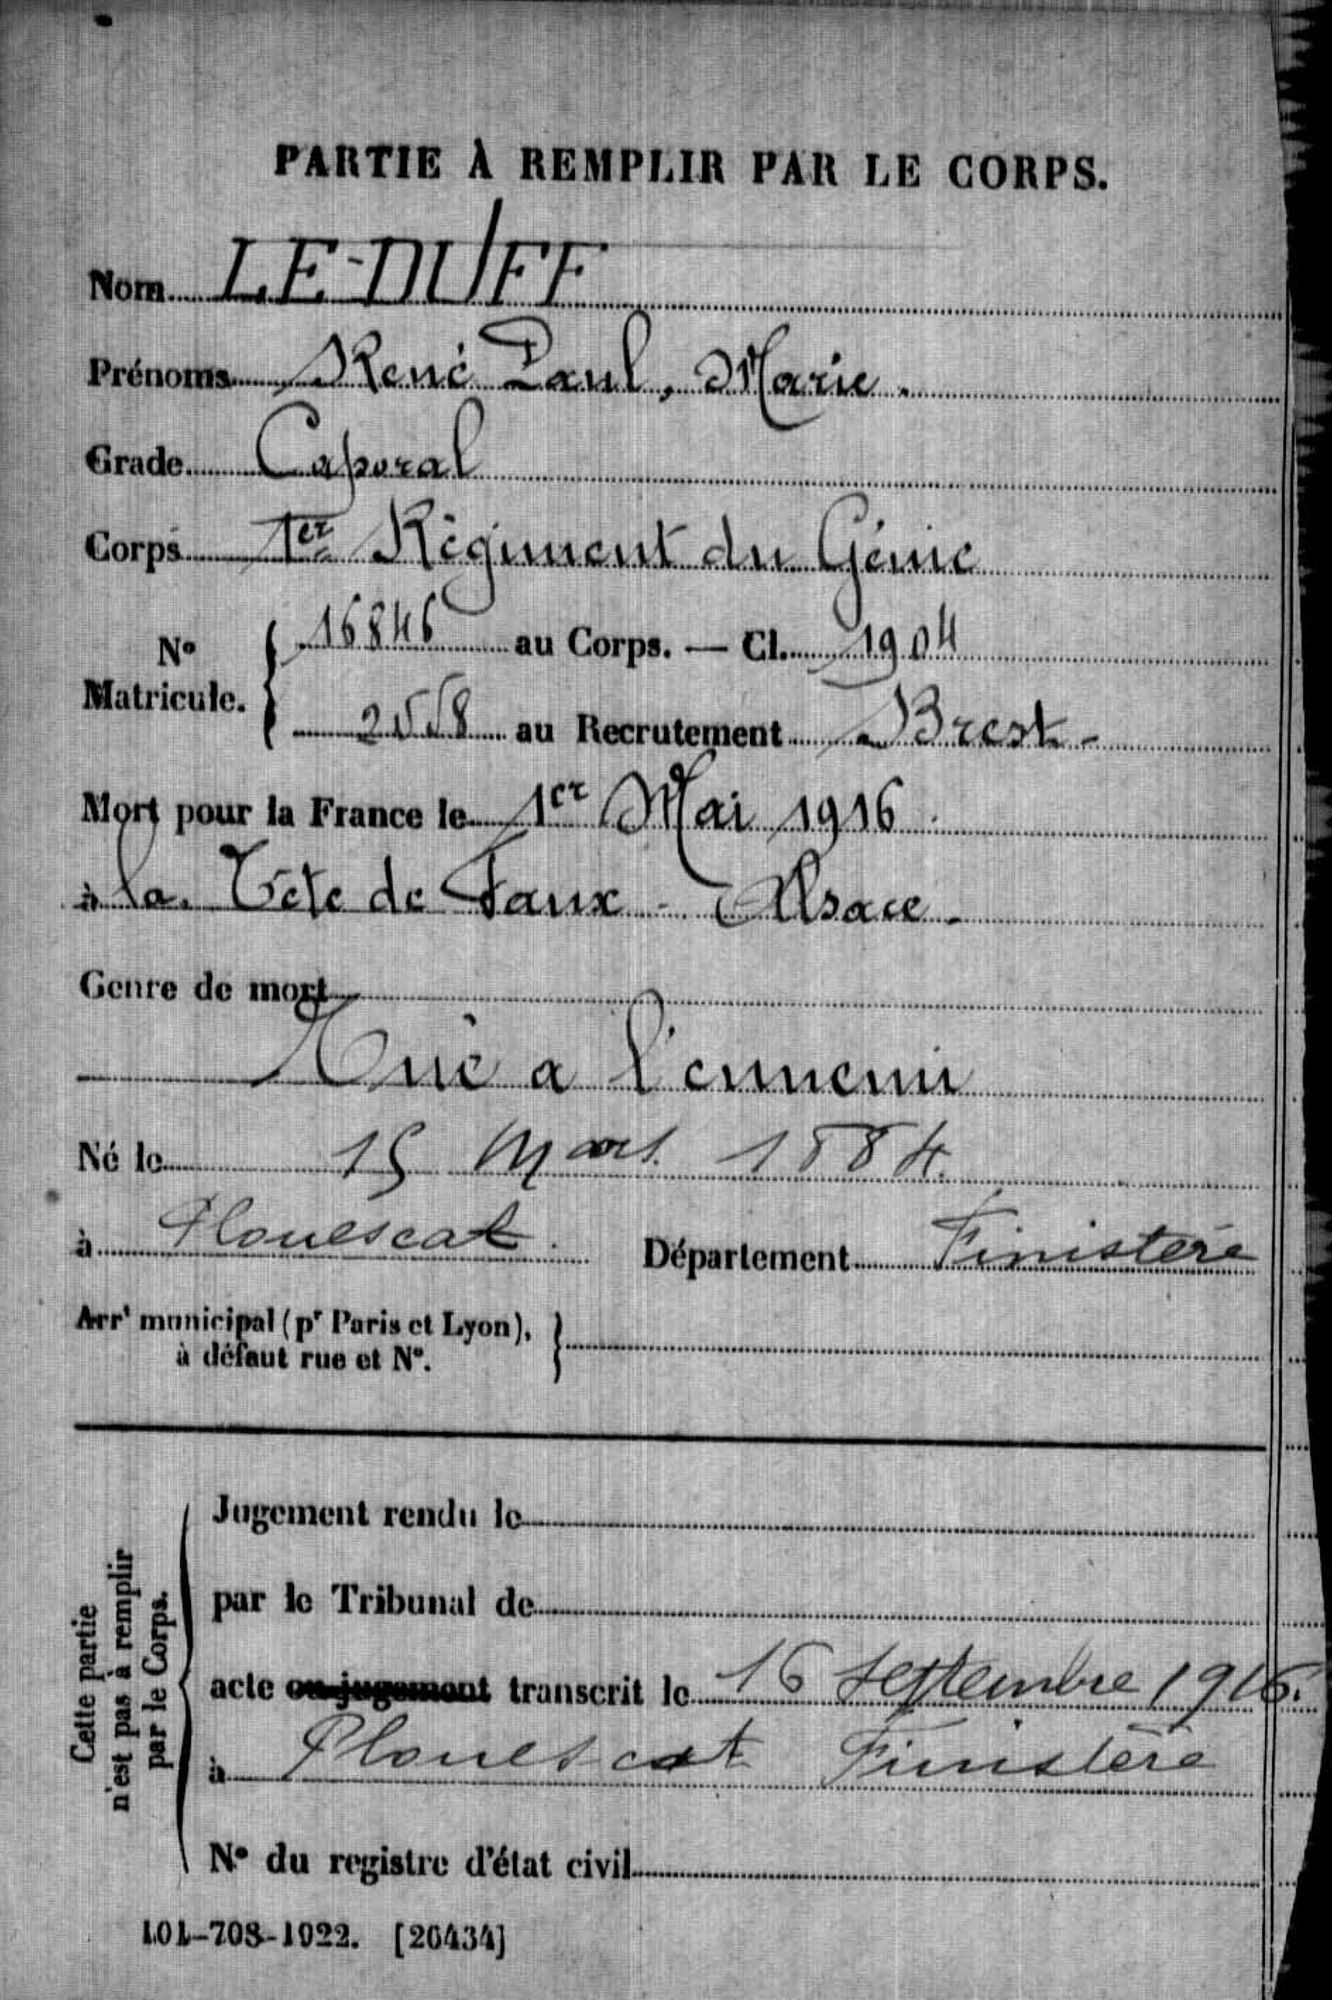 PARTIE À REMPLIR PAR LE CORPS.
Nom LE DUFF
Prénoms René Paul, Marie.
Grade Caporal
Corps 1er Régiment du Génie
No Matricule. { 16846 au Corps. — Cl. 1904
2558 au Recrutement Brest -
Mort pour la France le 1er Mai 1916.
à la Tête de Faux - Alsace -
Genre de mort
Tué a l'ennemi
Né le 15 Mars 1884.
à Plouescat. Département Finistère
Arrt municipal (pr Paris et Lyon), }
à défaut rue et No.
Cette partie
n'est pas à remplir
par le Corps.
Jugement rendu le
par le Tribunal de
acte ou jugement transcrit le 16 septembre 1916.
à Plouescat Finistère
No du registre d'état civil
101-708-1922. [26434]